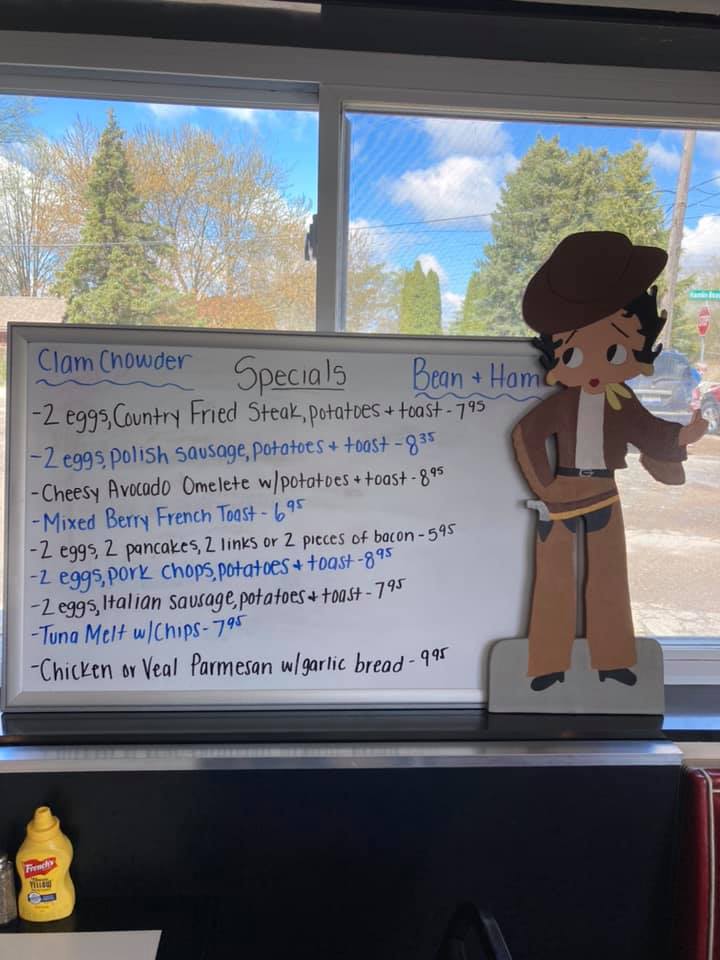 Clam Chowder Specials Bean + Ham
-2 eggs, Country Fried Steak, potatoes + toast - 7⁹⁵
-2 eggs, polish sausage, potatoes + toast - 8³⁵
-Cheesy Avocado Omelete w/potatoes + toast - 8⁹⁵
-Mixed Berry French Toast - 6⁹⁵
-2 eggs, 2 pancakes, 2 links or 2 pieces of bacon - 5⁹⁵
-2 eggs, pork chops, potatoes + toast - 8⁹⁵
-2 eggs, Italian sausage, potatoes + toast - 7⁹⁵
-Tuna Melt w/Chips - 7⁹⁵
-Chicken or Veal Parmesan w/garlic bread - 9⁹⁵
French's
YELLOW